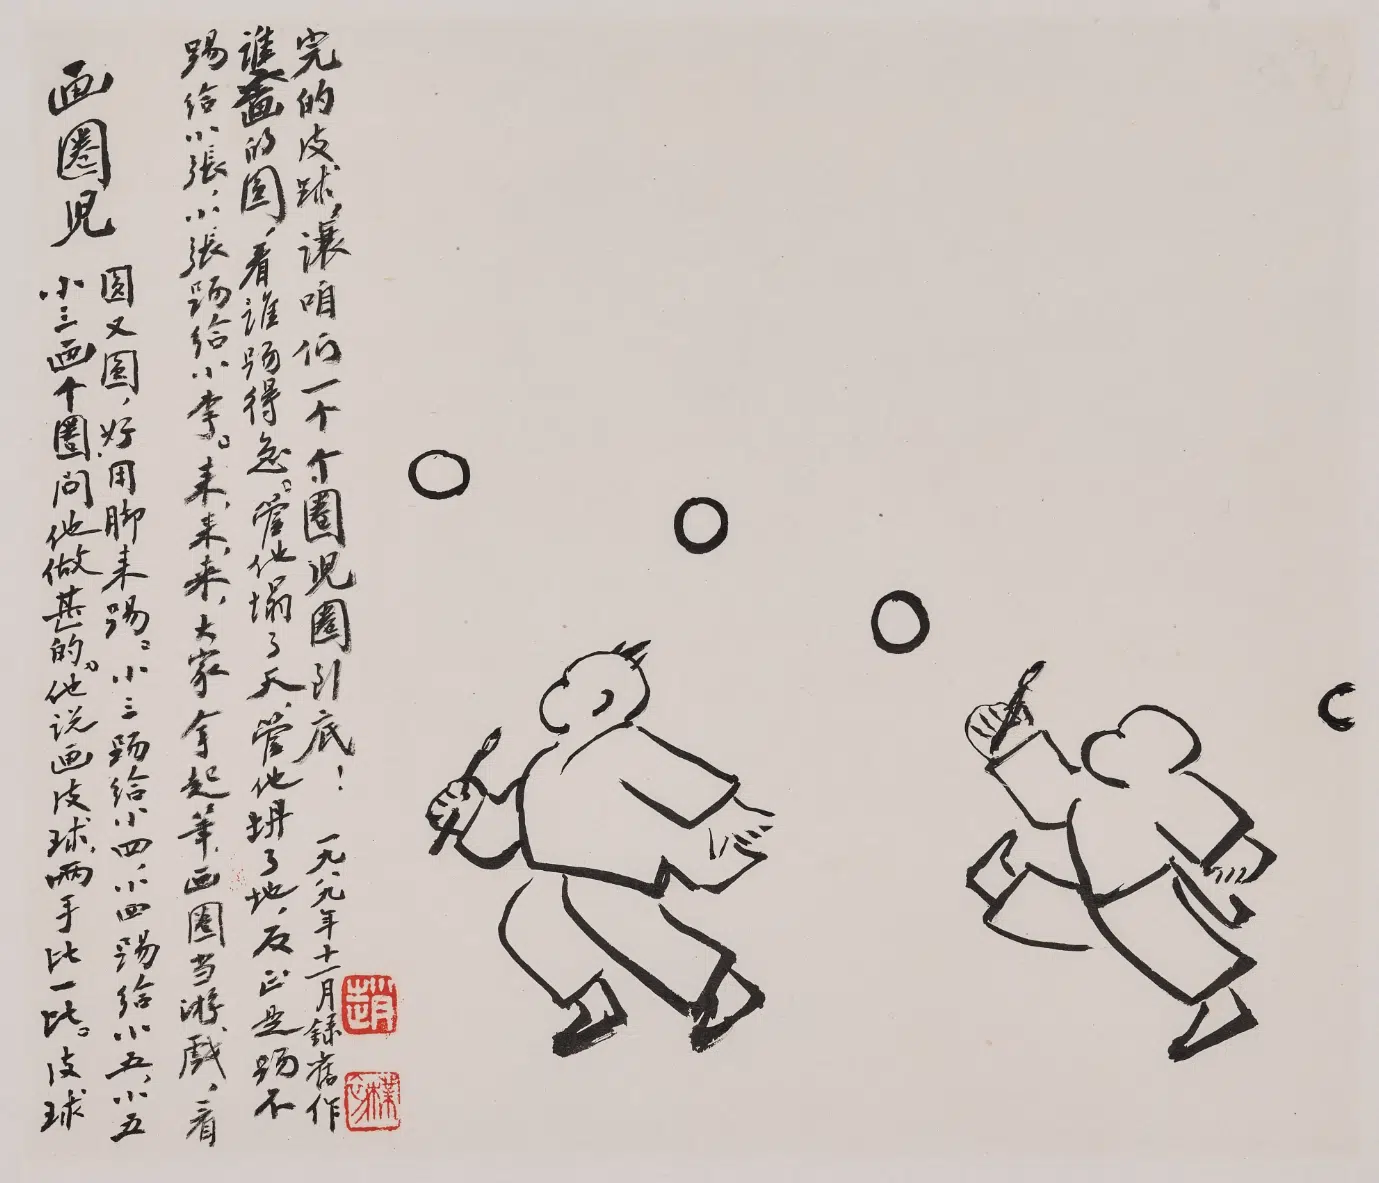 画圈児
小三画个圈问他做甚的。他说画皮球，两手比一比。皮球
圆又圆，好用脚来踢。小三踢给小四，小四踢给小五，小五
踢给小張，小張踢给小李。来，来，来，大家拿起筆，画圈当游戏，看
誰畫的圆，看誰踢得急。管他塌了天，管他坍了地，反正是踢不
完的皮球，讓咱们一个个圈児圈到底！
一九八九年十一月録舊作
趙
樸初